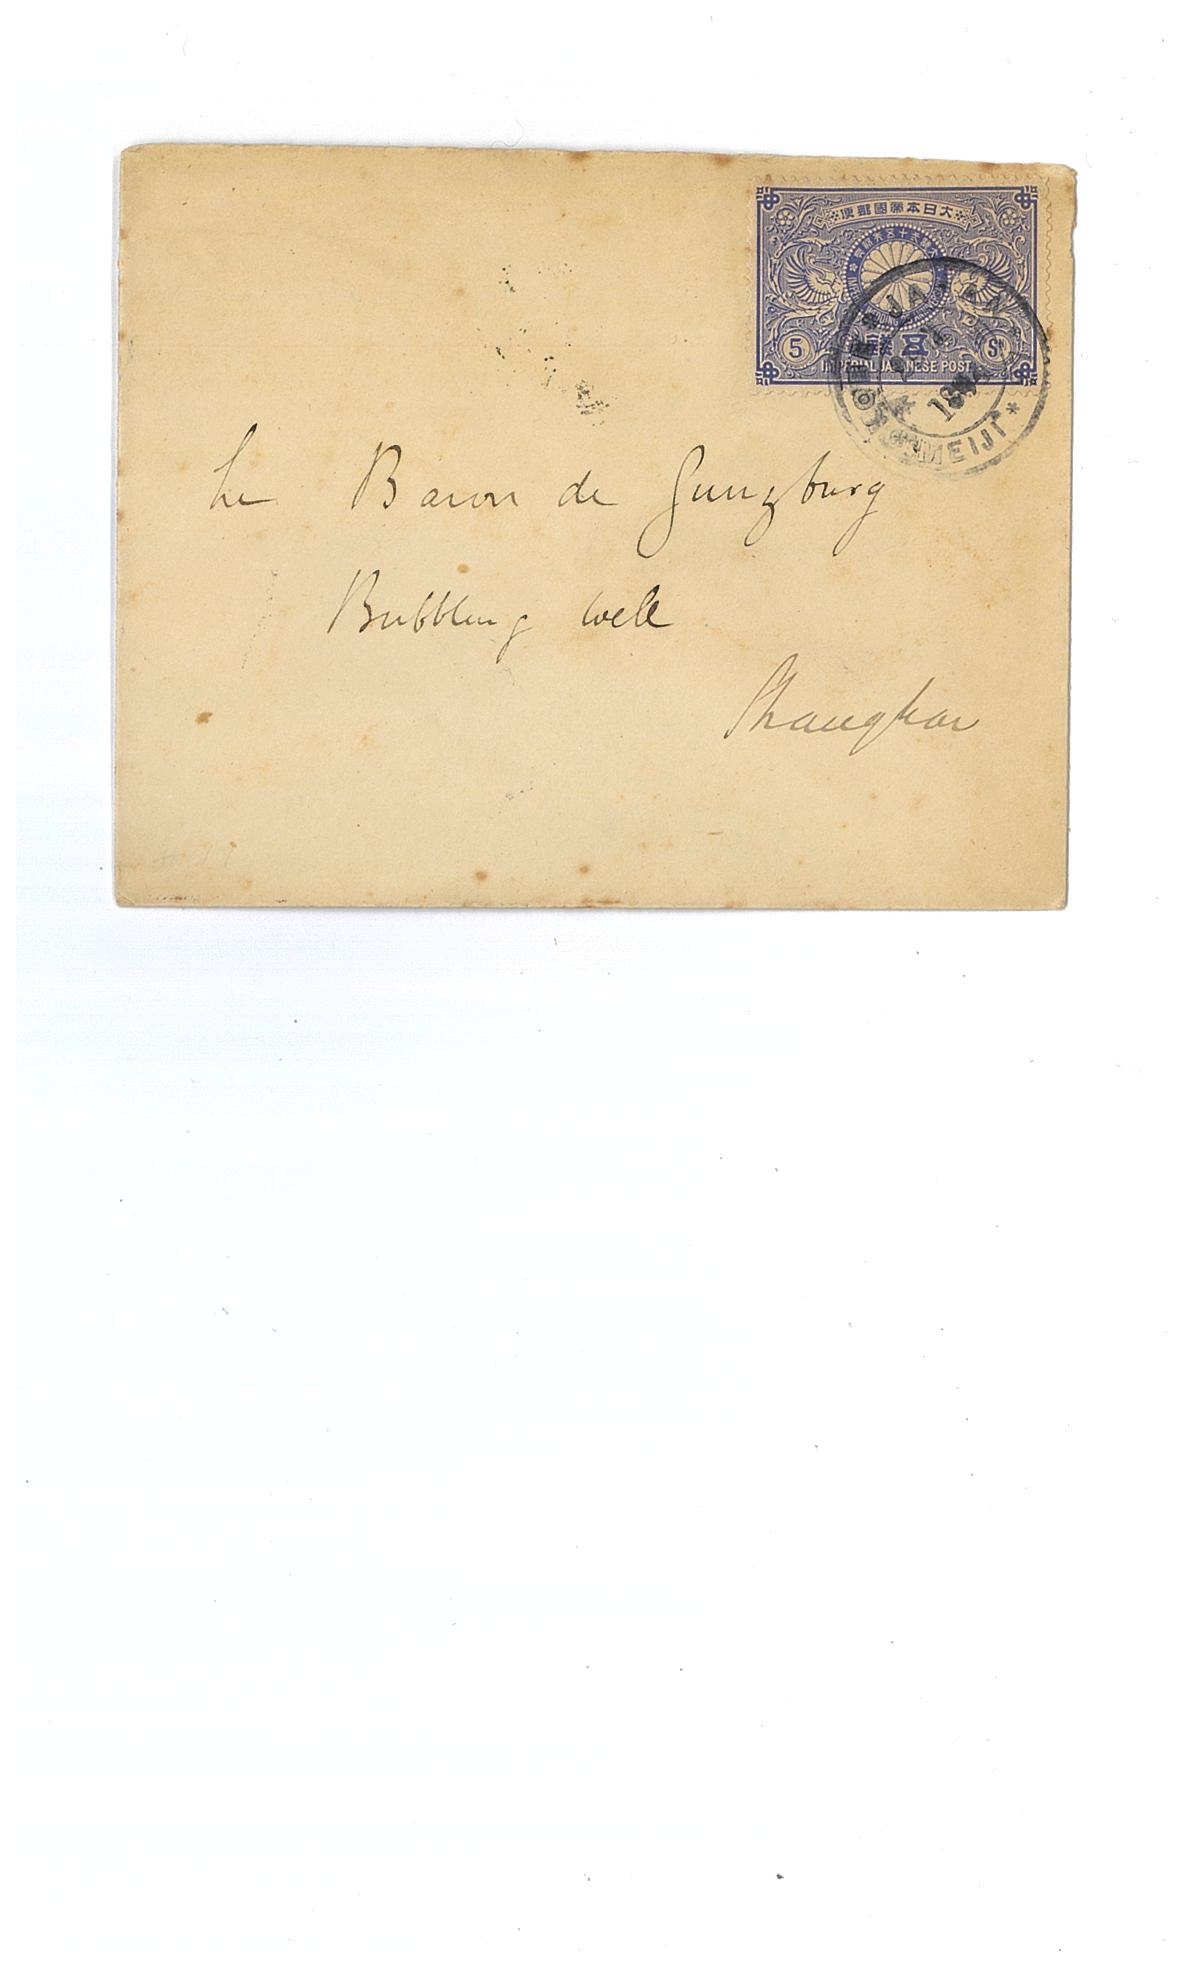 大日本帝國郵便
5
五
Sn
IMPERIAL JAPANESE POST
JAPAN
MEIJI
Le Baron de Gunzburg
Bubbling Well
Shanghai